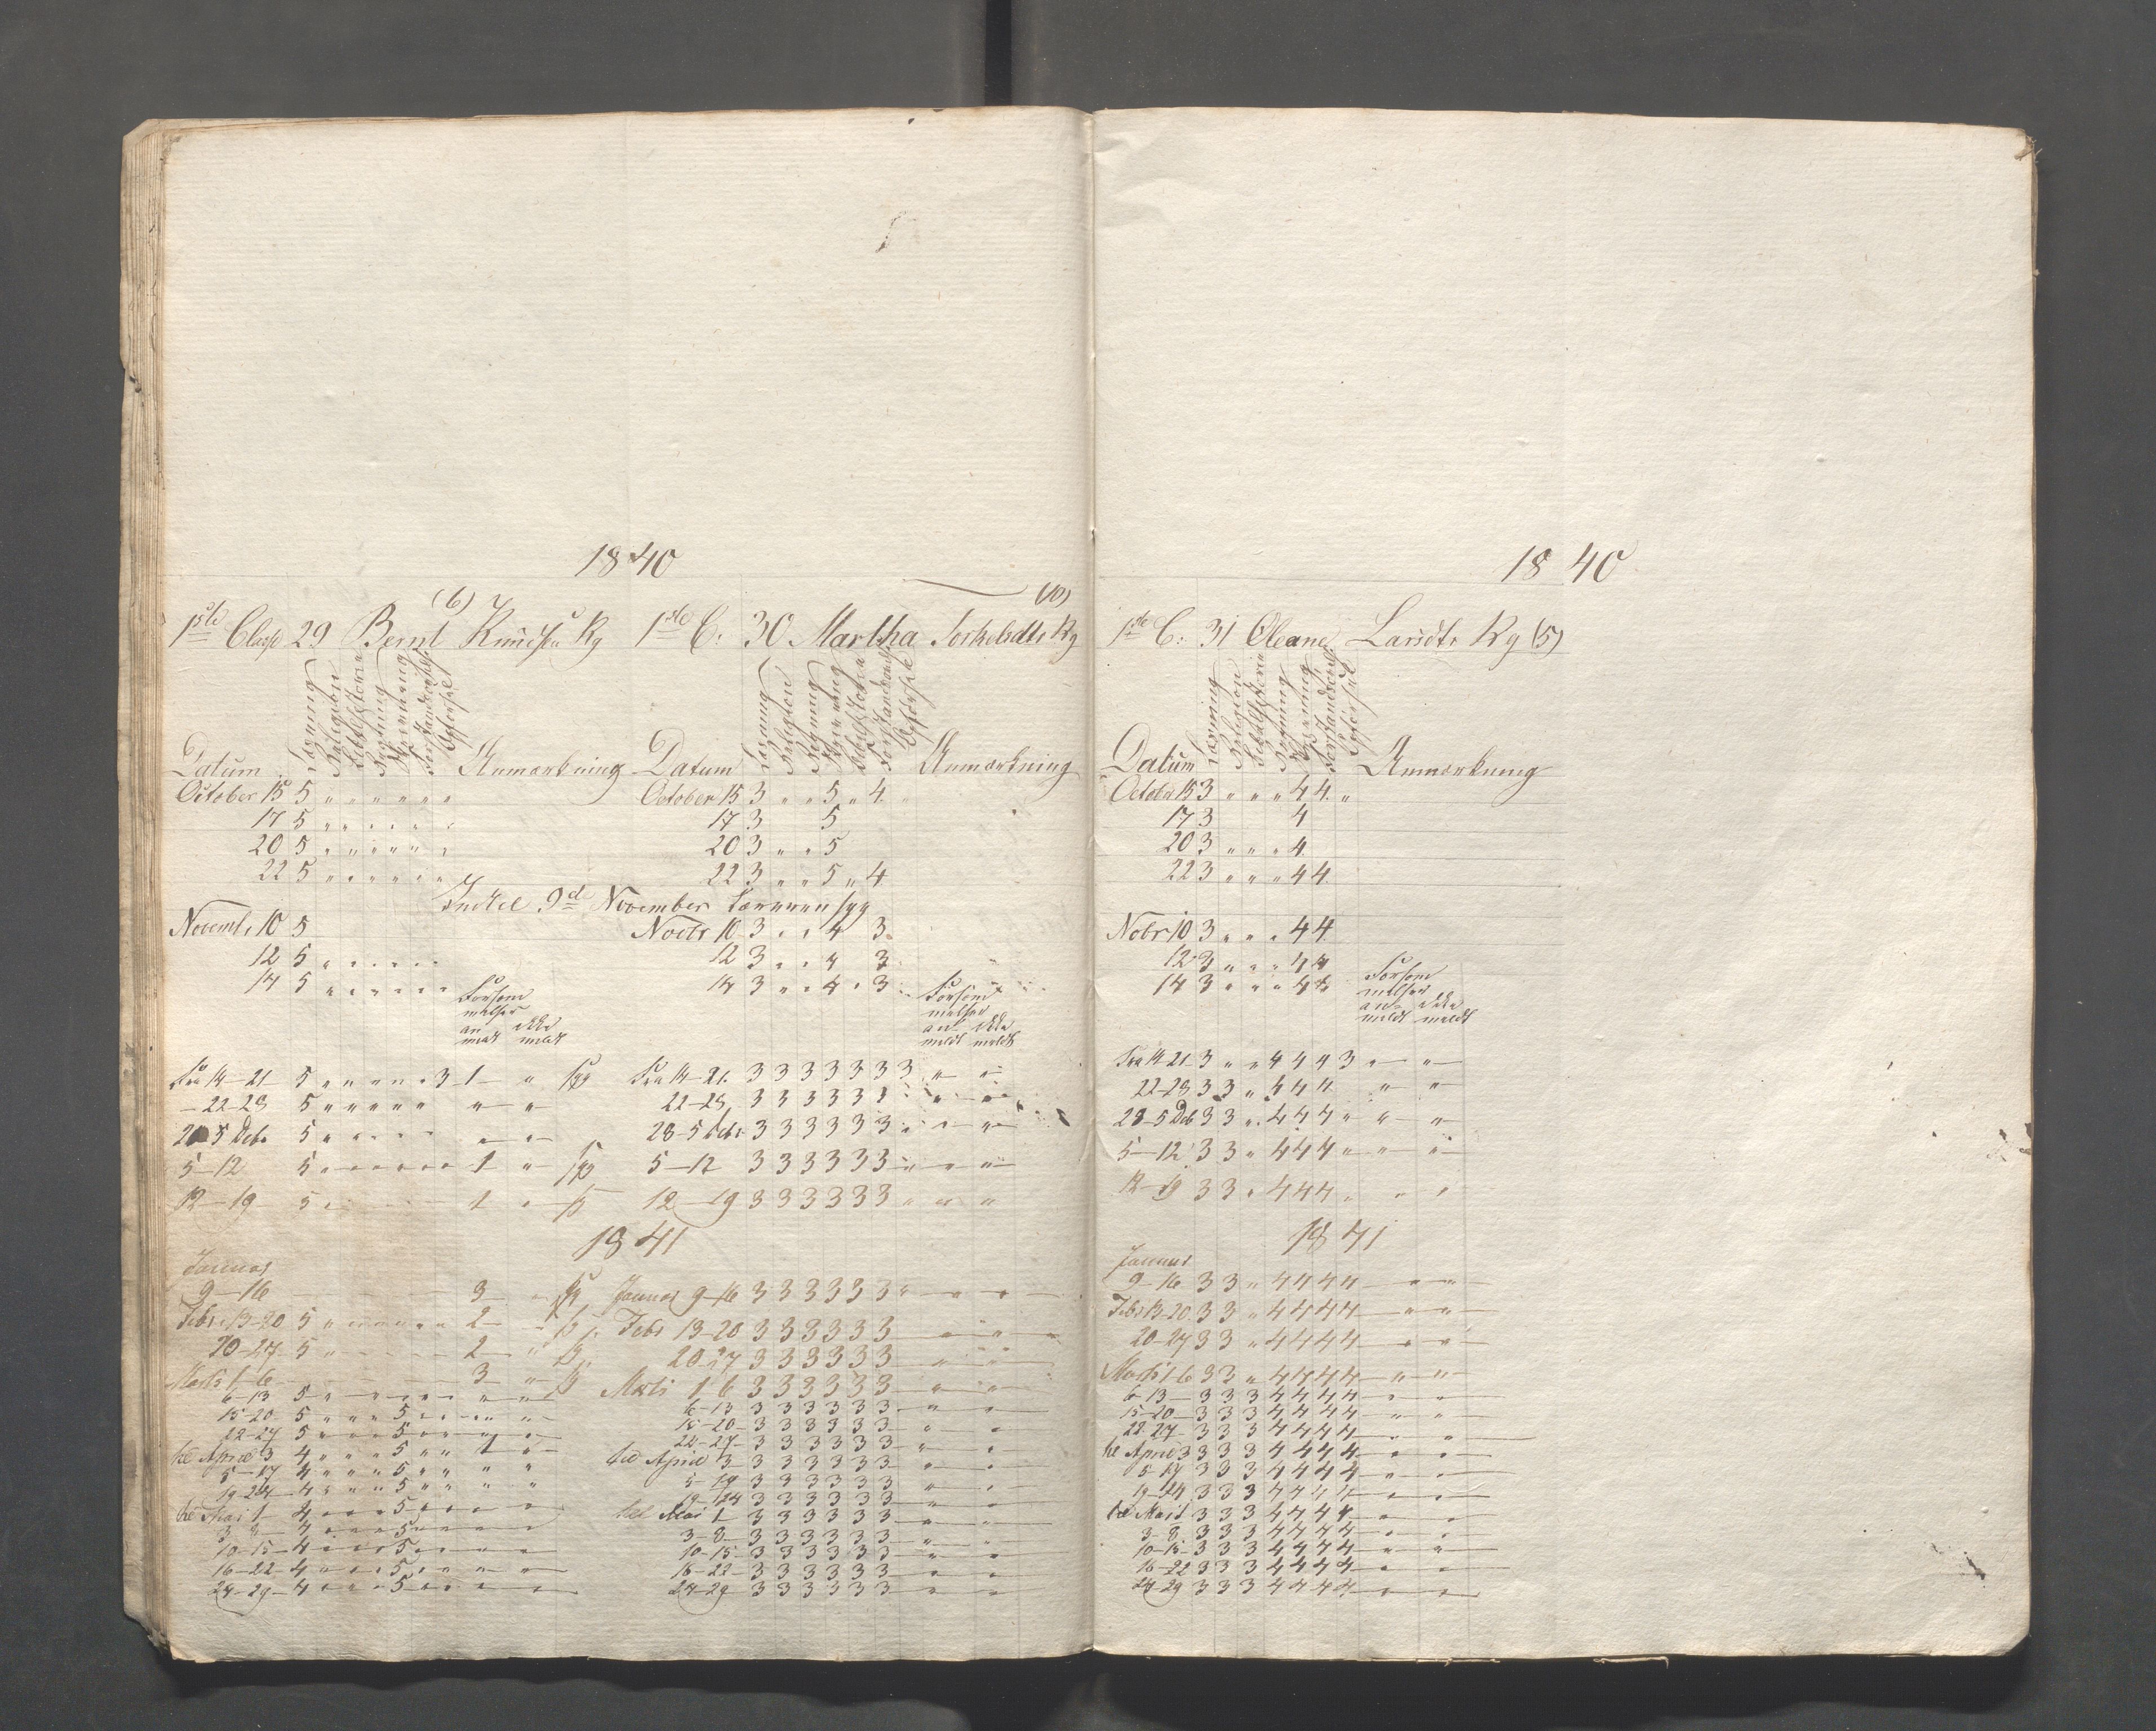 1840
(6)
1ste Classe 29 Bernt Knudsen Ry
Datum Læsning Religion Bibelhistorie Regning Skrivning Forstandsøvelse Opførsel Anmærkning
October 15 5 " " " " " "
17 5 " " " " " "
20 5 " " " " " "
22 5 " " " " " "
Indtil 9de November Læreren syg
Novembr 10 5
12 5 " " " " "
14 5 " " " " " "
Forsøm
melser
an ikke
meldt meldt
Fra 14-21 5 " " " " " 3 1 " syg
22-28 5 " " " " " " "
28-5 Debr 5 " " " " " " "
5-12 5 " " " " " " 1 " syg
12-19 5 " 1 "
1841
Januar
9-16 3 syg
Febr 13-20 5 " " " " " " 2
20-27 5 " 2 "
Marts 1-6 3 "
6-13 5 " " " " " " " "
15-20 5 " " " 5 " " " "
22-27 5 " " " 5 " " " "
til April 3 4 " " " 5 " " 1 "
5-17 4 " " " 5 " " " "
19-24 4 " " " 5 " " " "
til Mai 1 4 " " " 5 " " " "
3-8 4 " " " 5 " " " "
10-15 4 " " " 5 " " " "
16-22 4 " " " 5 " " " "
24-29 4 " " " 5 " " " "
(10)
1ste C: 30 Martha Torkelsdtr Ry
Datum Læsning Religion Regning Skrivning Bibelhistorie Forstandsøvelse Opførsel Anmærkning
October 15 3 " " 5 " 4
17 3 5
20 3 " " 5
22 3 " " 5 " 4
Novbr 10 3 " " 4 3
12 3 " " 4 3
14 3 " " 4 " 3
Forsøm
melser
an ikke
meldt meldt
Fra 14-21 3 3 3 3 3 3 3 " "
22-28 3 3 3 3 3 3 " "
28-5 Debr 3 3 3 3 3 3 " " "
5-12 3 3 3 3 3 3 " " "
12-19 3 3 3 3 3 3 " " "
Januar 9-16 3 3 3 3 3 3 " " "
Febr 13-20 3 3 3 3 3 3 " "
20-27 3 3 3 3 3 3 " "
Marts 1-6 3 3 3 3 3 3 " "
6-13 3 3 3 3 3 3 " "
15-20 3 3 3 3 3 3 " "
22-27 3 3 3 3 3 3 " "
til April 3 3 3 3 3 3 3 " "
5-17 3 3 3 3 3 3 " "
19-24 3 3 3 3 3 3 " "
til Mai 1 3 3 3 3 3 3 " "
3-8 3 3 3 3 3 3 " "
10-15 3 3 3 3 3 3 " "
16-22 3 3 3 3 3 3 " "
24-29 3 3 3 3 3 3 " "
1840
1ste C: 31 Oleane Larsdtr Ry (5)
Datum Læsning Religion Bibelhistorie Regning Skrivning Forstandsøvelse Opførsel Anmærkning
October 15 3 " " " 4 4 "
17 3 4
20 3 " " " 4
22 3 " " " 4 4
Nobr 10 3 " " " 4 4
12 3 " " " 4 4
14 3 " " " 4 4
Forsøm
melser
an ikke
meldt meldt
Fra 14-21 3 " " 4 4 4 3 " "
22-28 3 3 " 4 4 4 " "
28-5 Deb 3 3 " 4 4 4 " " "
5-12 3 3 " 4 4 4 " " "
12-19 3 3 " 4 4 4 " " "
1841
Januar
9-16 3 3 " 4 4 4 4 " "
Febr 13-20 3 3 " 4 4 4 4 " "
20-27 3 3 " 4 4 4 4 " "
Marts 1-6 3 3 " 4 4 4 4 " "
6-13 3 3 3 4 4 4 4 " "
15-20 3 3 3 4 4 4 4 " "
22-27 3 3 3 4 4 4 4 " "
til April 3 3 3 3 4 4 4 4 " "
5-17 3 3 3 4 4 4 4 " "
19-24 3 3 3 4 4 4 4 " "
til Mai 1 3 3 3 4 4 4 4 " "
3-8 3 3 3 4 4 4 4 " "
10-15 3 3 3 4 4 4 4 " "
16-22 3 3 3 4 4 4 4 " "
24-29 3 3 3 4 4 4 4 " "